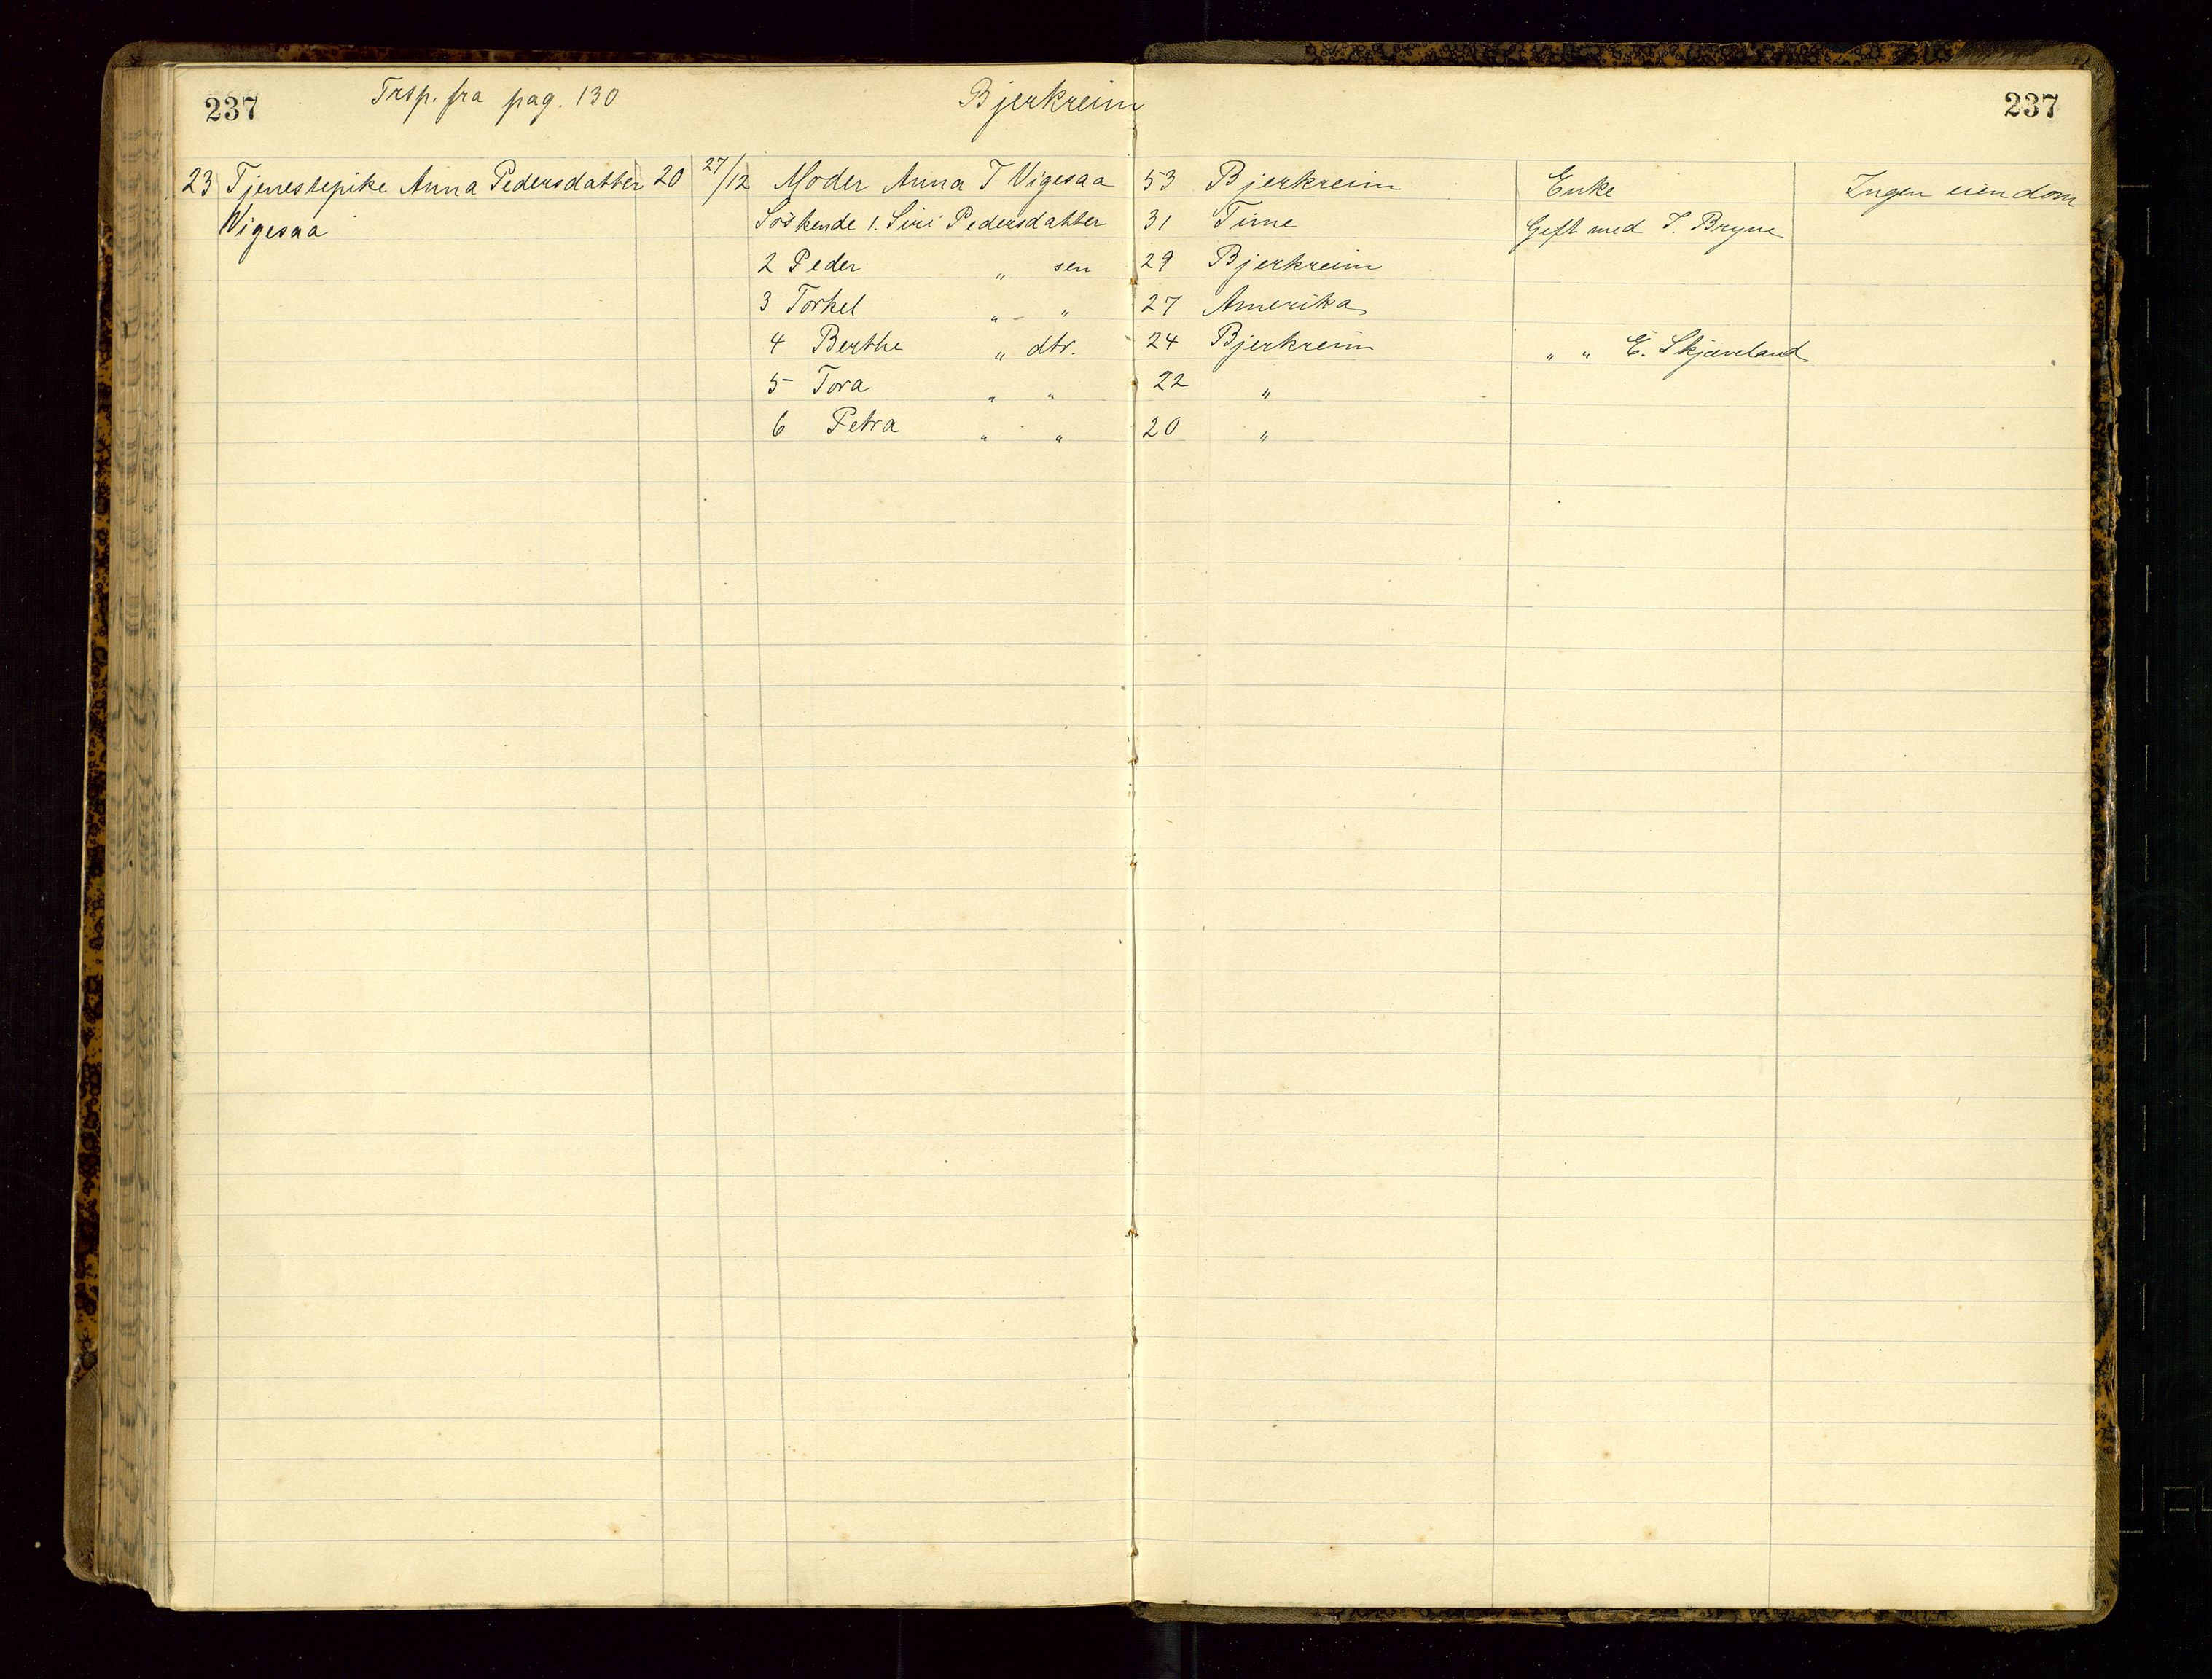 237 Trsp. fra pag. 130 Bjerkreim 237
23 Tjenestepike Anna Pedersdatter 20 27/12 Moder Anna T Vigesaa 53 Bjerkreim Enke Ingen eiendom
Vigesaa Søskende 1. Siri Pedersdatter 31 Time Gift med T. Bryne
2 Peder " sen 29 Bjerkreim
3 Torkel " " 27 Amerika
4 Berthe " dtr. 24 Bjerkreim " " E. Skjæveland
5 Tora " " 22 "
6 Petra " " 20 "